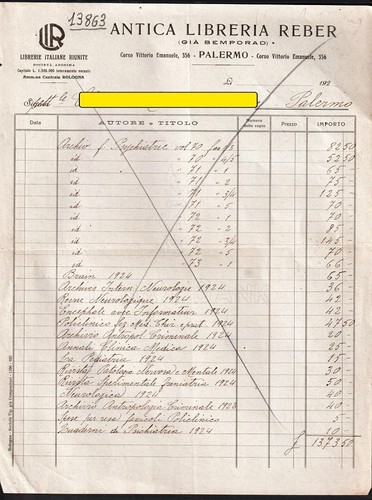 13863
LR
ANTICA LIBRERIA REBER
(GIÀ SEMPORAD)
LIBRERIE ITALIANE RIUNITE
SOCIETÀ ANONIMA
Corso Vittorio Emanuele, 356 - PALERMO - Corso Vittorio Emanuele, 356
BOLOGNA
192
Palermo
Data AUTORE e TITOLO Prezzo IMPORTO
Archiv f. Psychiatrie vol 70 fas 1/3 82 50
id " 70 - 4/5 52 50
id " 71 - 1 65 -
id " 71 - 2 75 -
id " 71 - 3/4 125 -
id " 71 - 5 70 -
id " 72 - 1 70 -
id " 72 - 2 85 -
id " 72 - 3/4 145 -
id " 72 - 5 70 -
id " 73 - 1 66 -
Brain 1924 65 -
Archives Intern/ Neurologie 1924 36 -
Revue Neurologique 1924 42 -
Encephale avec Informateur 1924 42 -
Policlinico 1924 47 50
Archivio Antropol Criminale 1924 20 -
Annali Clinica Medica 1924 25 -
La Pediatria 1924 15 -
Rivista Patologia Nervosa e Mentale 1924 30 -
Rivista Sperimentale freniatria 1924 50 -
Neurologica 1924 40 -
Archivio Antropologia Criminale 1923 40 -
Spese per resa fascicoli Policlinico 5 -
Quaderni di Psichiatria 1924 10 -
£ 1373 50